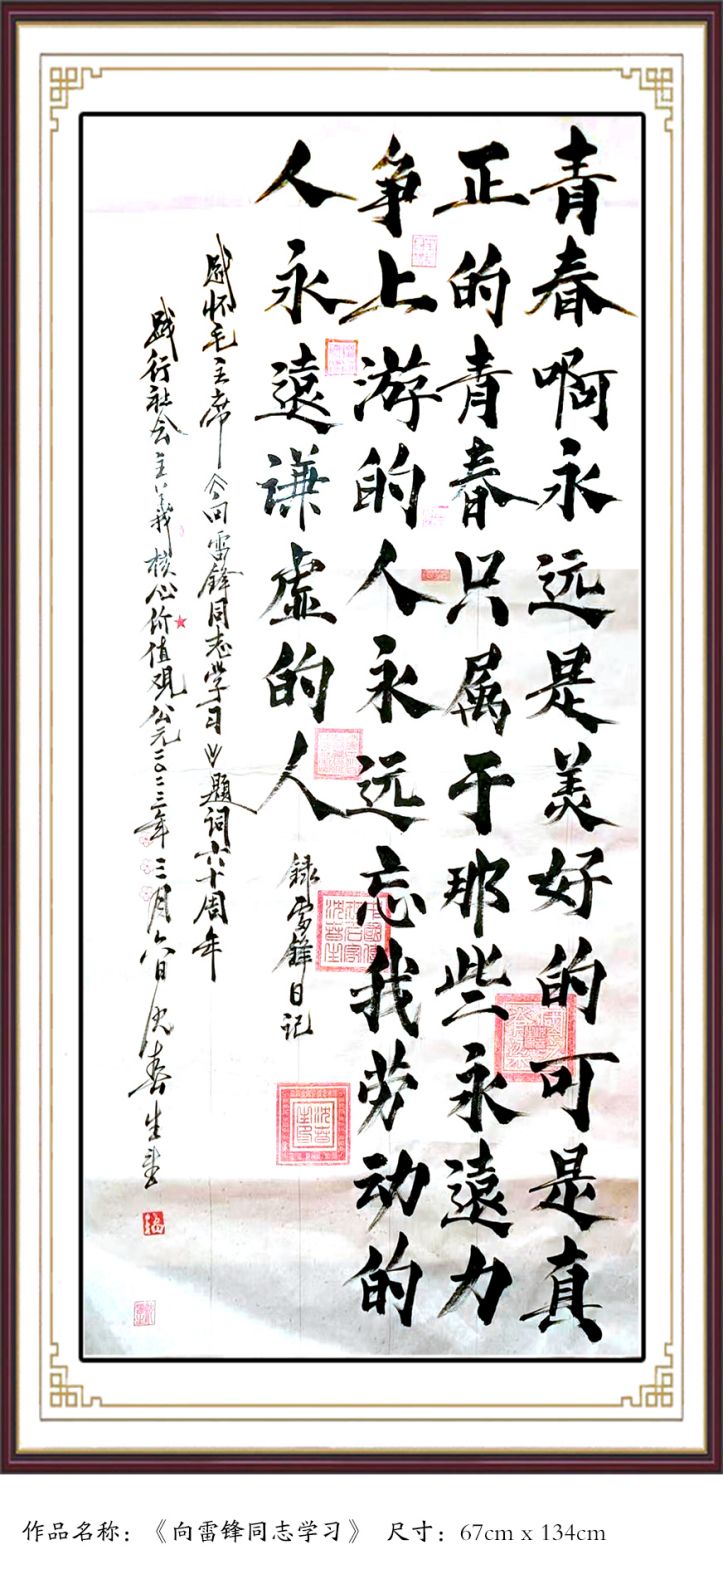 青春啊永远是美好的可是真
正的青春只属于那些永遠力
争上游的人永远忘我劳动的
人永遠谦虚的人
録雷锋日记
感怀毛主席《向雷锋同志学习》题词六十周年
践行社会主義核心价值观公元二〇二三年三月六日沈春生書
作品名称：《向雷锋同志学习》 尺寸：67cm x 134cm